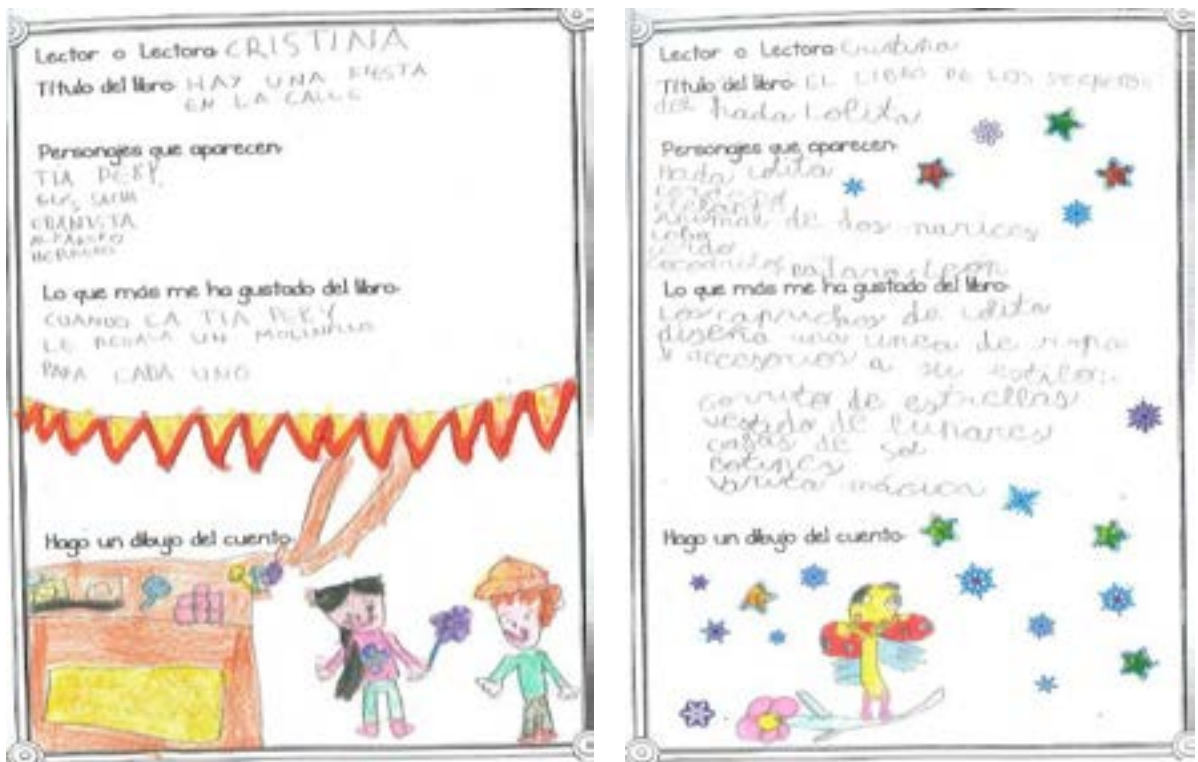 Lector o Lectora CRISTINA
Título del libro HAY UNA FIESTA
EN LA CALLE
Personajes que aparecen
TIA PEKY
Lo que más me ha gustado del libro
CUANDO LA TIA PEKY
LE REGALA UN MOLINILLO
PARA CADA UNO
Hago un dibujo del cuento
Lector o Lectora Cristina
Título del libro EL LIBRO DE LOS SECRETOS
del hada Lolita
Personajes que aparecen
Hada Lolita
animal de dos narices
Lo que más me ha gustado del libro
Los caprichos de Lolita
diseña una linea de ropa
y accesorios a su estilo:
gorrito de estrellas
vestido de lunares
gafas de sol
botines
varita mágica
Hago un dibujo del cuento